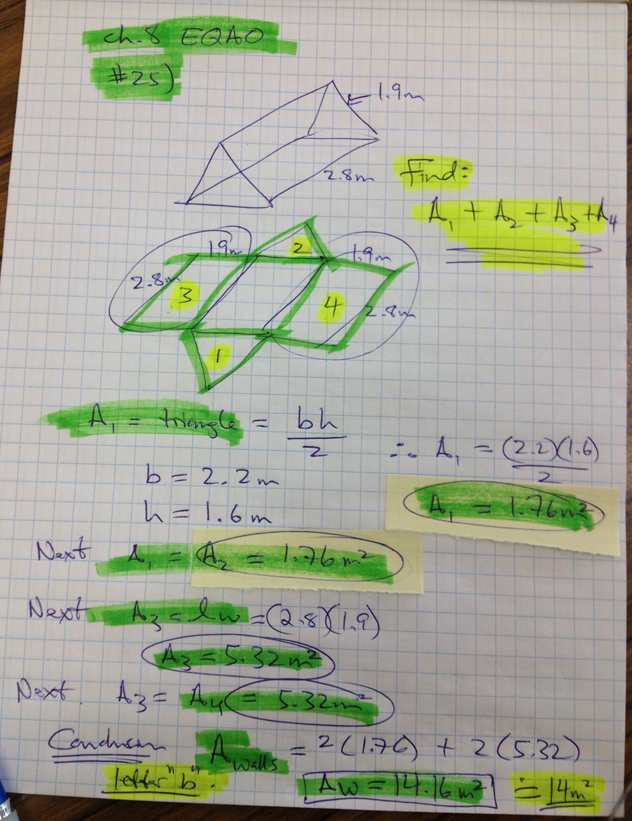 ch.8 EQAO
#25)
1.9m
2.8m
Find:
A₁ + A₂ + A₃ + A₄
1.9m
2
1.9m
2.8m
3
4
2.8m
1
A₁ = triangle = bh/2
∴ A₁ = (2.2)(1.6)/2
b = 2.2m
A₁ = 1.76m²
h = 1.6m
Next A₁ = A₂ = 1.76m²
Next A₃ = lw = (2.8)(1.9)
A₃ = 5.32m²
Next. A₃ = A₄ = 5.32m²
Conclusion A walls = 2(1.76) + 2(5.32)
letter "b". Aw = 14.16m² ≐ 14m²